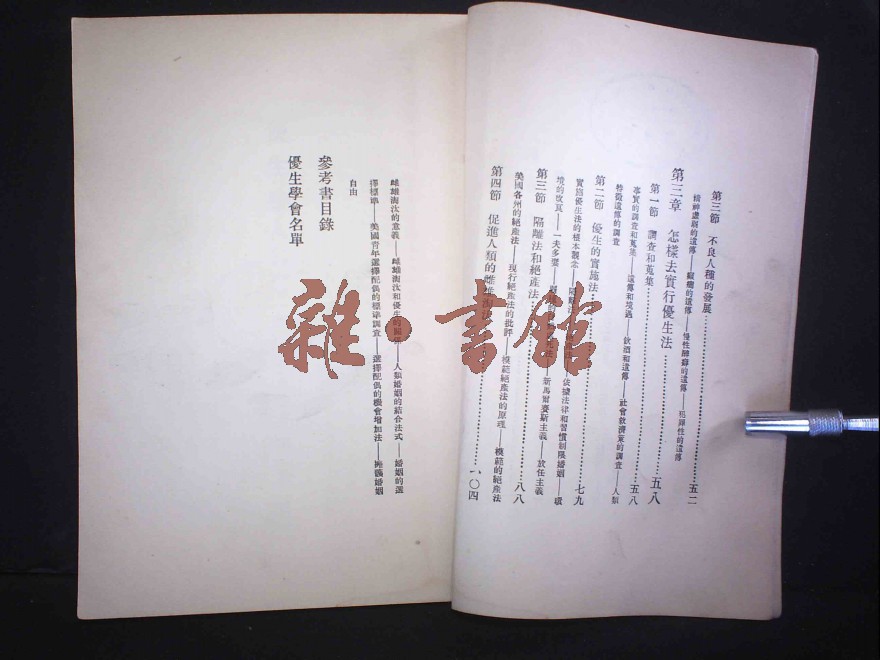 第三節 不良人種的發展……五二
精神虛弱的遺傳——癲癇的遺傳——慢性酗酒的遺傳——犯罪性的遺傳
第三章 怎樣去實行優生法……五八
第一節 調查和蒐集……五八
事實的調查和蒐集——遺傳和境遇——飲酒和遺傳——社會救濟策的調查——人類
特徵遺傳的調查
第二節 優生的實施法……七九
實施優生法的根本觀念——隔離法——依據法律和習慣制限婚姻——環
境的改良——一夫多妻——新馬爾賽斯主義——放任主義
第三節 隔離法和絕產法……八八
美國各州的絕產法——現行絕產法的批評——模範絕產法的原理——模範的絕產法
第四節 促進人類的雌雄淘汰……一〇四
雌雄淘汰的意義——雌雄淘汰和優生的關係——人類婚姻的結合法式——婚姻的選
擇標準——美國青年選擇配偶的標準調查——選擇配偶的機會增加法——擁護婚姻
自由
參考書目錄
優生學會名單
雜·書館